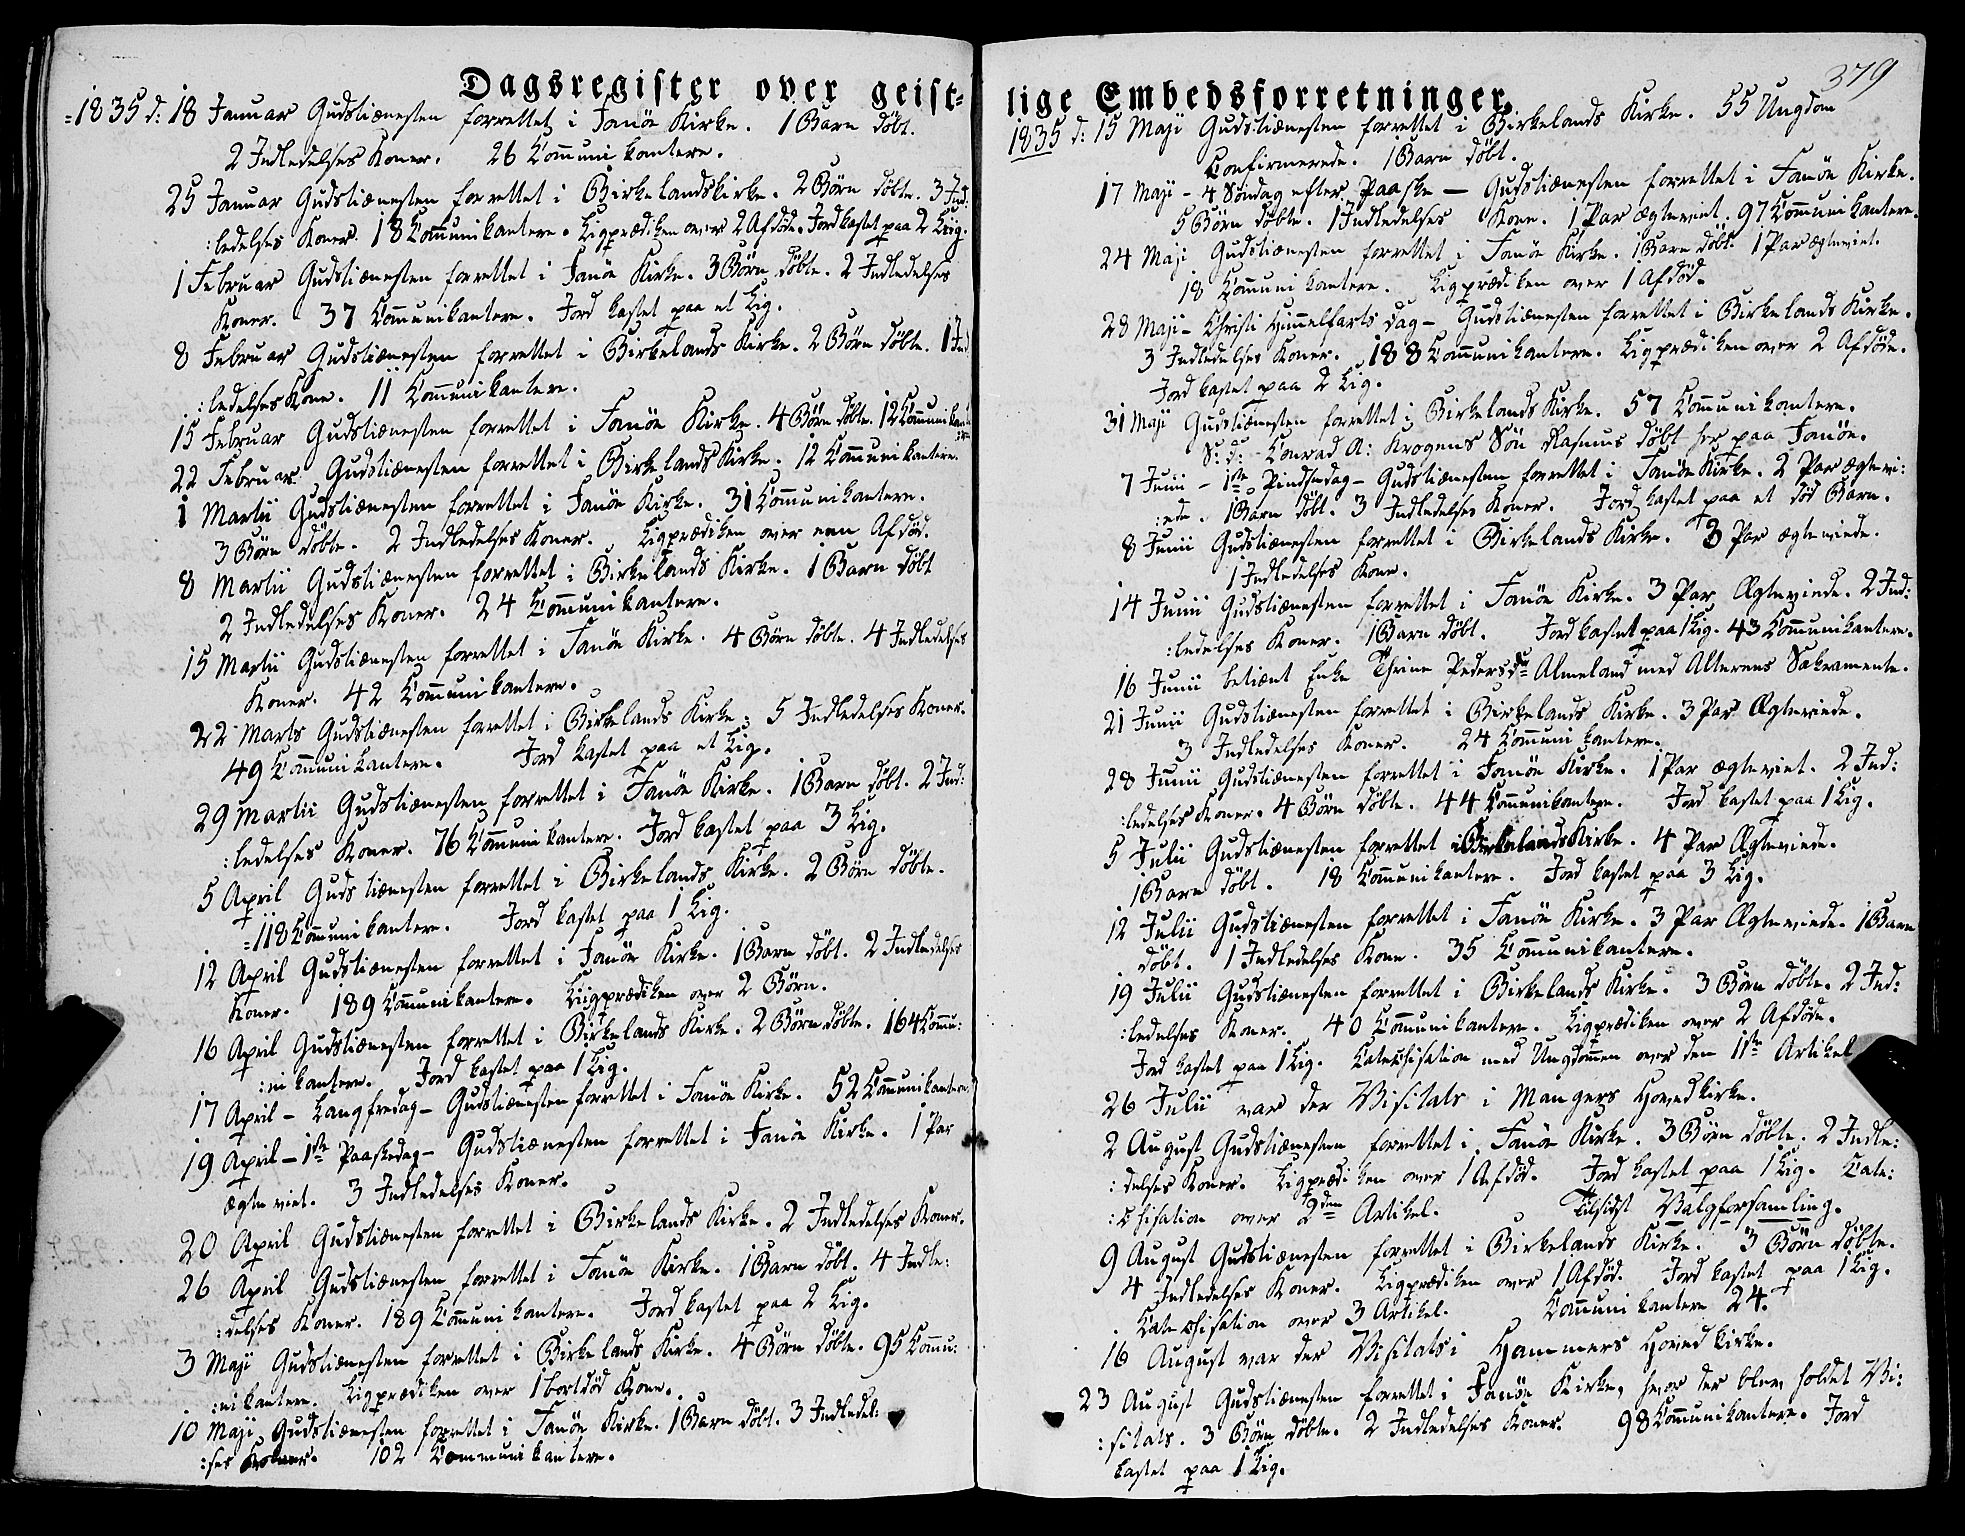 Dagsregister over geist-
=1835 d: 18 Januar Gudstienesten forrettet i Fanöe Kirke. 1 Barn döbt.
2 Indledelses Koner. 26 Com̄unikantere.
25 Januar Gudstienesten forrettet i Birkelandskirke. 2 Börn döbte. 3 Ind:
:ledelses Koner. 18 Com̄unikantere. Ligprædiken over 2 Afdöde. Jord kastet paa 2 Liig.
1 Februar Gudstienesten forrettet i Fanöe Kirke. 3 Börn döbte. 2 Indledelses
Koner. 37 Com̄unikantere. Jord kastet paa et Lig.
8 Februar Gudstienesten forrettet i Birkelands Kirke. 2 Börn döbte. 1 Ind:
:ledelses Kone. 11 Com̄unikantere.
15 Februar Gudstienesten forrettet i Fanöe Kirke. 4 Börn döbte. 12 Com̄unikan
22 Februar Gudstienesten forrettet i Birkelands Kirke. 12 Com̄unikantere.
1 Martii Gudstienesten forrettet i Fanöe Kirke. 31 Com̄unikantere.
3 Börn döbte. 2 Indledelses Koner. Ligprædiken over een Afdöd.
8 Martii Gudstienesten forrettet i Birkelands Kirke. 1 Barn döbt
2 Indledelses Koner. 24 Com̄unikantere.
15 Martii Gudstienesten forrettet i Fanöe Kirke. 4 Börn döbte. 4 Indledelses
Koner. 42 Com̄unikantere.
22 Marts Gudstienesten forrettet i Birkelands Kirke: 5 Indledelses Koner.
49 Com̄unikantere. Jord kastet paa et Lig.
29 Martii Gudstienesten forrettet i Fanöe Kirke. 1 Barn döbt. 2 Ind:
:ledelses Koner. 76 Com̄unikantere. Jord kastet paa 3 Lig.
5 April Gudstienesten forrettet i Birkelands Kirke. 2 Börn döbte.
=118 Com̄unikantere. Jord kastet paa 1 Lig.
12 April Gudstienesten forrettet i Fanöe Kirke. 1 Barn döbt. 2 Indledelses
Koner. 189 Com̄unikantere. Liigprædiken over 2 Börn.
16 April Gudstienesten forrettet i Birkelands Kirke. 2 Börn döbte. 164 Com̄u:
:nikantere. Jord kastet paa 1 Lig.
17 April - Langfredag - Gudstienesten forrettet i Fanöe Kirke. 52 Com̄unikantere.
19 April - 1ste Paaskedag - Gudstienesten forrettet i Fanöe Kirke. 1 Par
ægteviet. 3 Indledelses Koner.
20 April Gudstienesten forrettet i Birkelands Kirke. 2 Indledelses Koner.
26 April Gudstienesten forrettet i Fanöe Kirke. 1 Barn döbt. 4 Indle:
:delses Koner. 189 Com̄unikantere. Jord kastet paa 2 Lig.
3 Maji Gudstienesten forrettet i Birkelands Kirke. 4 Börn döbte. 95 Com̄u:
:nikantere. Ligprædiken over 1 bortdöd Kone.
10 Maji Gudstienesten forrettet i Fanöe Kirke. 1 Barn döbt. 3 Indledel:
:ses Koner. 102 Communikantere.
379
lige Embedsforretninger.
1835 d: 15 Maji Gudstienesten forrettet i Birkelands Kirke. 55 Ungdom
Confirmerede. 1 Barn döbt.
17 Maji - 4 Söndag efter Paaske - Gudstienesten forrettet i Fanöe Kirke.
5 Börn döbte. 1 Indledelses Kone. 1 Par ægteviet. 97 Com̄unikantere.
24 Maji Gudstienesten forrettet i Fanöe Kirke. 1 Barn döbt. 1 Par ægteviet.
18 Com̄unikantere. Ligprædiken over 1 Afdöd.
28 Maji - Christi Himmelfarts dag - Gudstienesten forrettet i Birkelands Kirke.
3 Indledelses Koner. 188 Com̄unikantere. Ligprædiken over 2 Afdöde.
Jord kastet paa 2 Lig.
31 Maji Gudstienesten forrettet i Birkelands Kirke. 57 Com̄unikantere.
S: D: Conrad A: Krogens Sön Rasmus döbt her paa Fanöe.
7 Junii - 1ste Pindsedag - Gudstienesten forrettet i Fanöe Kirke. 2 Par ægtevi:
:ede. 1 Barn döbt. 3 Indledelses Koner. Jord kastet paa et död Barn.
8 Junii Gudstienesten forrettet i Birkelands Kirke. 3 Par ægteviede.
1 Indledelses Kone.
14 Junii Gudstienesten forrettet i Fanöe Kirke. 3 Par Ægteviede. 2 Ind:
:ledelses Koner. 1 Barn döbt. Jord kastet paa 1 Lig. 43 Com̄unikantere.
16 Junii betient Enke Thrine Pedersdtr Almeland med Alterens Sakramente.
21 Junii Gudstienesten forrettet i Birkelands Kirke. 3 Par Ægteviede.
3 Indledelses Koner. 24 Com̄unikantere.
28 Junii Gudstienesten forrettet i Fanöe Kirke. 1 Par ægteviet. 2 Ind:
:ledelses Koner. 4 Börn döbte. 44 Com̄unikantere. Jord kastet paa 1 Lig.
5 Julii Gudstienesten forrettet i Birkelands Kirke. 4 Par Ægteviede.
1 Barn döbt. 18 Com̄unikantere. Jord kastet paa 3 Lig.
12 Julii Gudstienesten forrettet i Fanöe Kirke. 3 Par Ægteviede. 1 Barn
döbt. 1 Indledelses Kone. 35 Com̄unikantere.
19 Julii Gudstienesten forrettet i Birkelands Kirke. 3 Börn döbte. 2 Ind:
:ledelses Koner. 40 Com̄unikantere. Ligprædiken over 2 Afdöde.
Jord kastet paa 1 Lig. Catechisation med Ungdomen over den 1ste Artikel
26 Julii var der Visitats i Mangers Hovedkirke.
2 August Gudstienesten forrettet i Fanöe Kirke. 3 Börn döbte. 2 Indle:
:delses Koner. Ligprædiken over 1 Afdöd. Jord kastet paa 1 Lig. Cate:
:chisation over 2den Artikel. Tilsidst Valgforsamling.
9 August Gudstienesten forrettet i Birkelands Kirke. 3 Börn döbte.
4 Indledelses Koner. Ligprædiken over 1 Afdöd. Jord kastet paa 1 Lig.
Catechisation over 3 Artikel. Com̄unikantere 24.
16 August var der Visitats i Hammers Hovedkirke.
23 August Gudstienesten forrettet i Fanöe Kirke, hvor der blev holdet Vi:
:sitats. 3 Börn döbte. 2 Indledelses Koner. 98 Com̄unikantere. Jord
kastet paa 1 Lig.